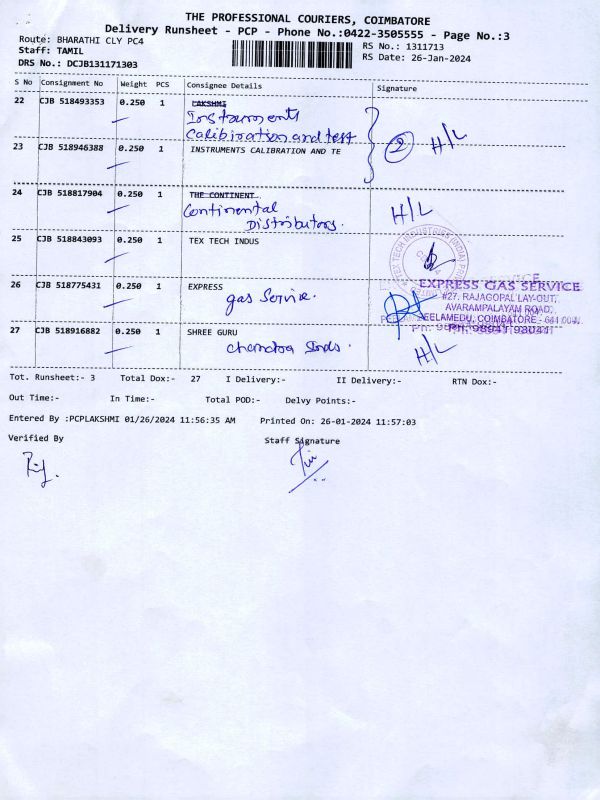 THE PROFESSIONAL COURIERS, COIMBATORE
Delivery Runsheet - PCP - Phone No.:0422-3505555 - Page No.:3
Route: BHARATHI CLY PC4
RS No.: 1311713
Staff: TAMIL
RS Date: 26-Jan-2024
DRS No.: DCJB131171303
S No Consignment No Weight PCS Consignee Details Signature
22 CJB 518493353 0.250 1 LAKSHMI
Instruments
Calibiration and test
23 CJB 518946388 0.250 1 INSTRUMENTS CALIBRATION AND TE
2 H/L
24 CJB 518817904 0.250 1 THE CONTINENT
Continental
Distributors.
H/L
25 CJB 518843093 0.250 1 TEX TECH INDUS
26 CJB 518775431 0.250 1 EXPRESS
gas Service.
EXPRESS GAS SERVICE
#27, RAJAGOPAL LAY-OUT,
AVARAMPALAYAM ROAD,
PEELAMEDU, COIMBATORE - 641 004.
27 CJB 518916882 0.250 1 SHREE GURU
chandra Snds.
H/L
Tot. Runsheet:- 3 Total Dox:- 27 I Delivery:- II Delivery:- RTN Dox:-
Out Time:- In Time:- Total POD:- Delvy Points:-
Entered By :PCPLAKSHMI 01/26/2024 11:56:35 AM Printed On: 26-01-2024 11:57:03
Verified By Staff Signature